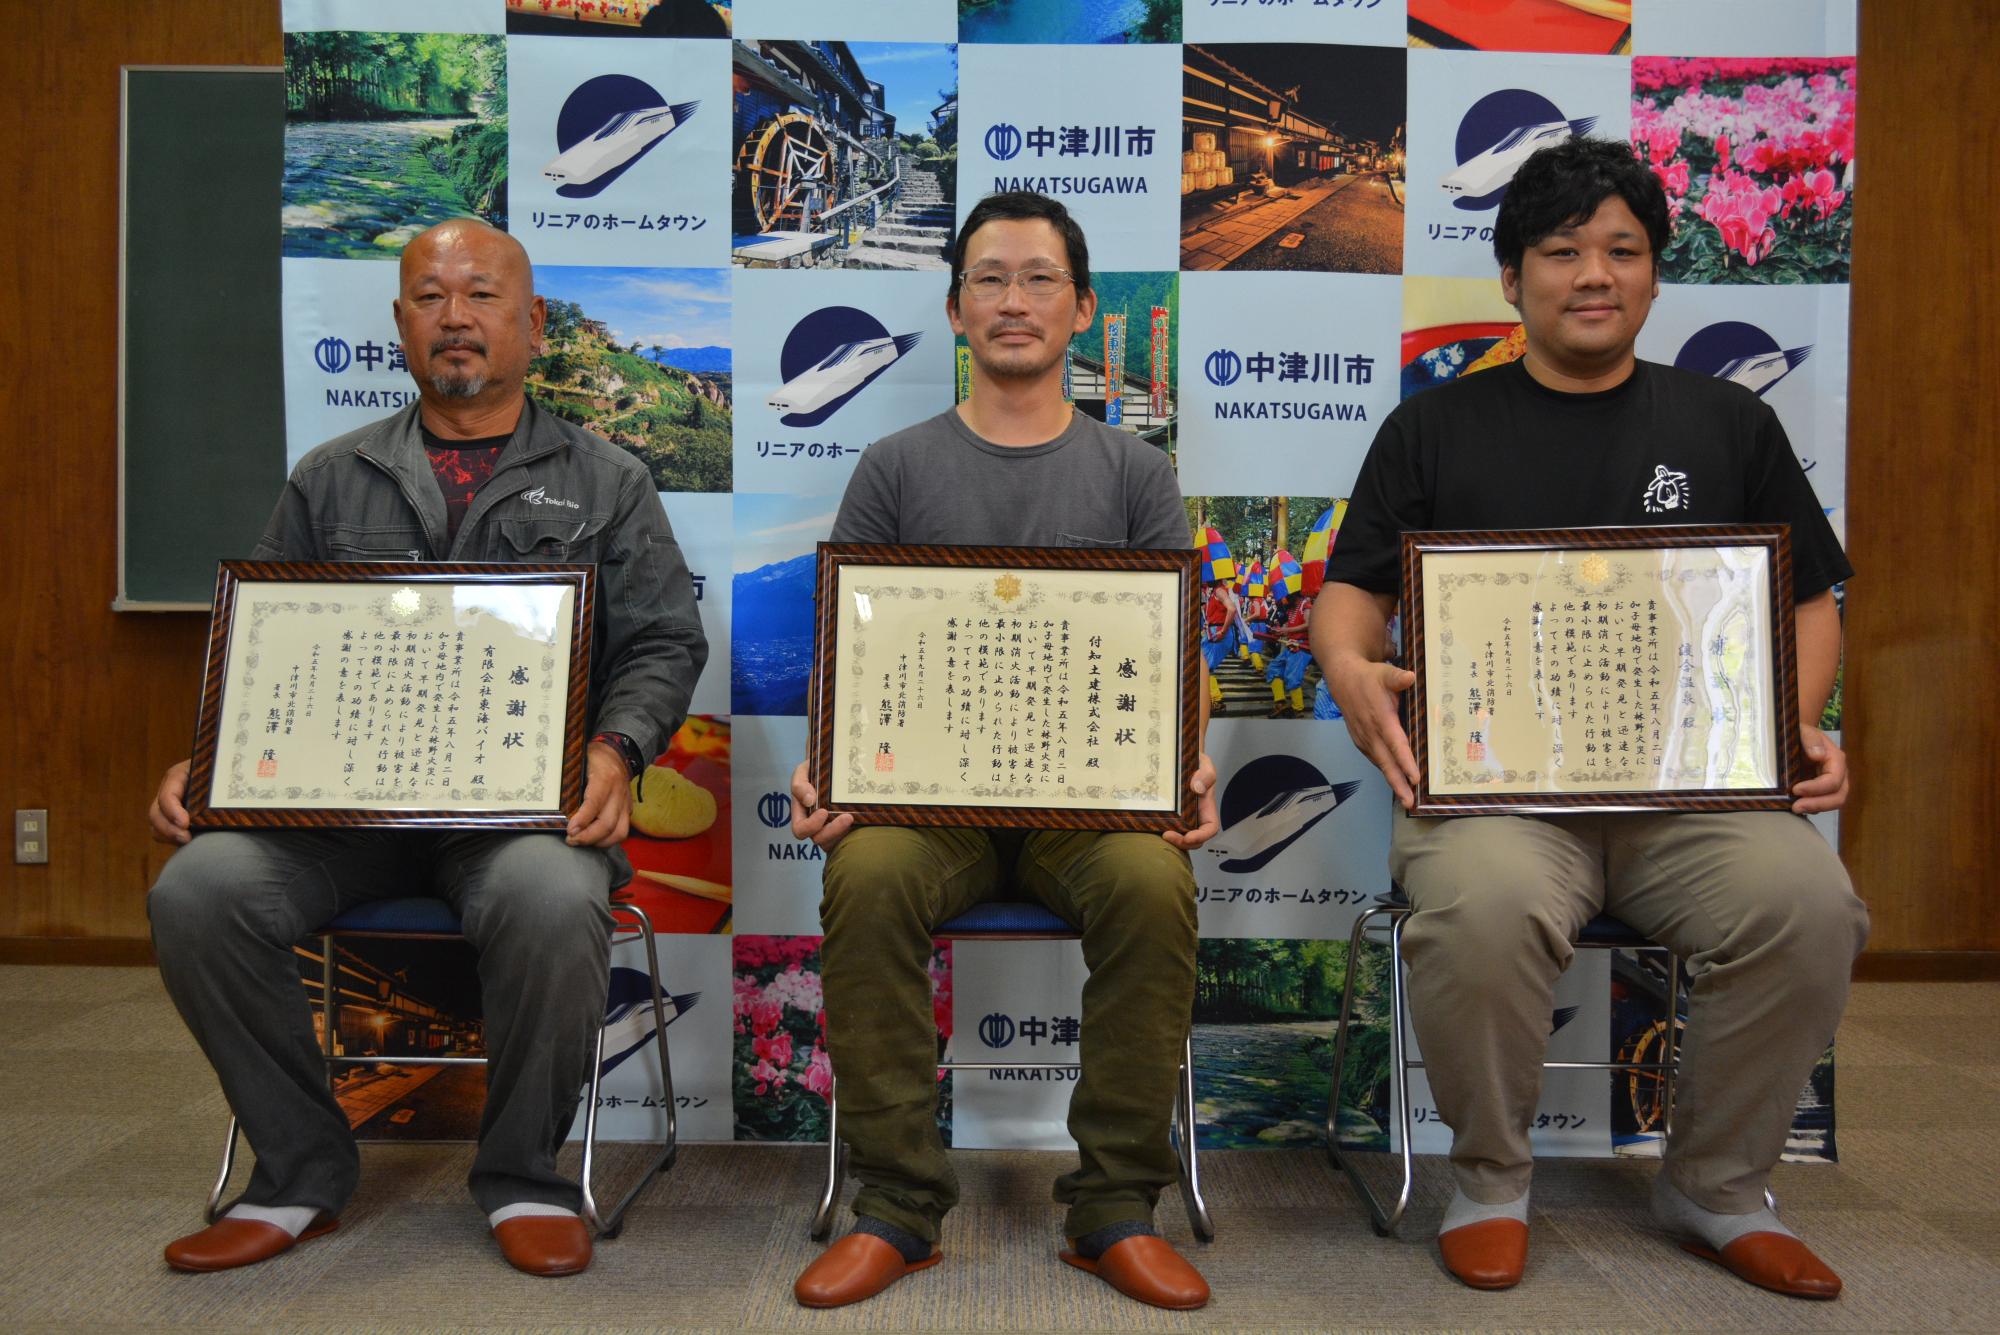 リニアのホームタウン
中津川市
NAKATSUGAWA
リニアの
中津
NAKATSU
リニアのホー
中津川市
NAKATSUGAWA
Tokai Bio
感謝状
有限会社東海バイオ 殿
貴事業所は令和五年八月二日
加子母地内で発生した林野火災に
おいて早期発見と迅速な
初期消火活動により被害を
最小限に止められた行動は
他の模範であります
よってその功績に対し深く
感謝の意を表します
令和五年九月二十六日
中津川市北消防署
署長 熊澤 隆
感謝状
付知土建株式会社 殿
貴事業所は令和五年八月二日
加子母地内で発生した林野火災に
おいて早期発見と迅速な
初期消火活動により被害を
最小限に止められた行動は
他の模範であります
よってその功績に対し深く
感謝の意を表します
令和五年九月二十六日
中津川市北消防署
署長 熊澤 隆
感謝状
渡合温泉 殿
貴事業所は令和五年八月二日
加子母地内で発生した林野火災に
おいて早期発見と迅速な
初期消火活動により被害を
最小限に止められた行動は
他の模範であります
よってその功績に対し深く
感謝の意を表します
令和五年九月二十六日
中津川市北消防署
署長 熊澤 隆
NAKA
リニアのホームタウン
中津川
NAKATSU
のホームタウン
リニ
タウン